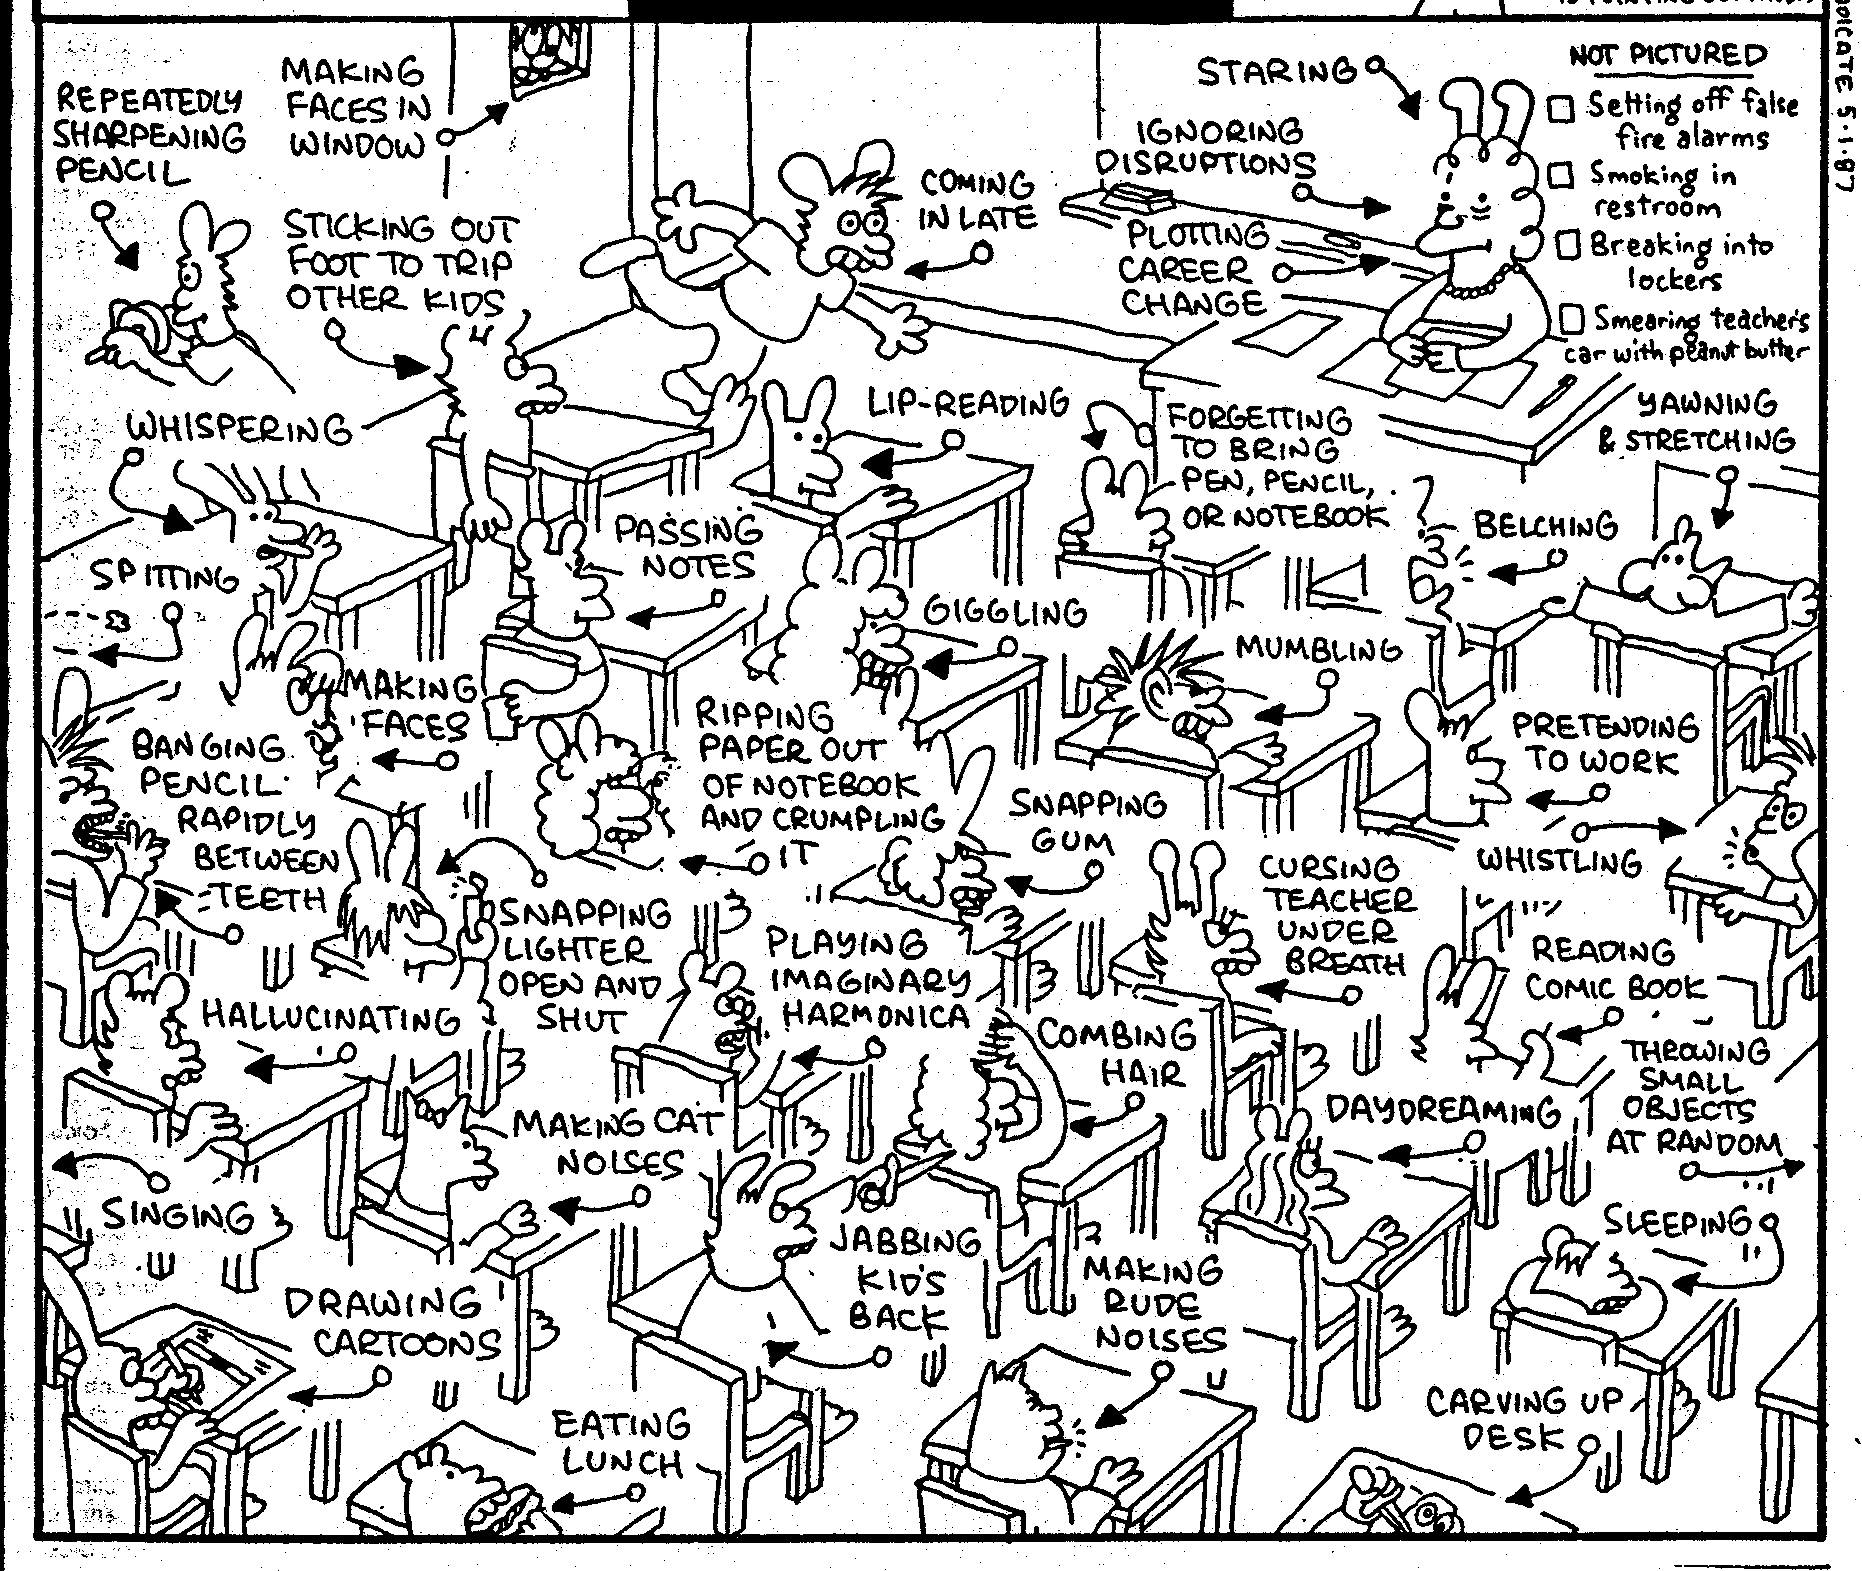 REPEATEDLY
SHARPENING
PENCIL
MAKING
FACES IN
WINDOW
STICKING OUT
FOOT TO TRIP
OTHER KIDS
COMING
IN LATE
STARING
IGNORING
DISRUPTIONS
PLOTTING
CAREER
CHANGE
NOT PICTURED
Setting off false
fire alarms
Smoking in
restroom
Breaking into
lockers
Smearing teacher's
car with peanut butter
DICATE 5.1.87
WHISPERING
LIP-READING
FORGETTING
TO BRING
PEN, PENCIL,
OR NOTEBOOK
YAWNING
& STRETCHING
SPITTING
PASSING
NOTES
GIGGLING
BELCHING
MUMBLING
MAKING
FACES
BANGING
PENCIL
RAPIDLY
BETWEEN
TEETH
RIPPING
PAPER OUT
OF NOTEBOOK
AND CRUMPLING
IT
SNAPPING
GUM
PRETENDING
TO WORK
WHISTLING
SNAPPING
LIGHTER
OPEN AND
SHUT
PLAYING
IMAGINARY
HARMONICA
CURSING
TEACHER
UNDER
BREATH
READING
COMIC BOOK
HALLUCINATING
COMBING
HAIR
THROWING
SMALL
OBJECTS
AT RANDOM
MAKING CAT
NOISES
DAYDREAMING
SINGING
JABBING
KID'S
BACK
MAKING
RUDE
NOISES
SLEEPING
DRAWING
CARTOONS
EATING
LUNCH
CARVING UP
DESK